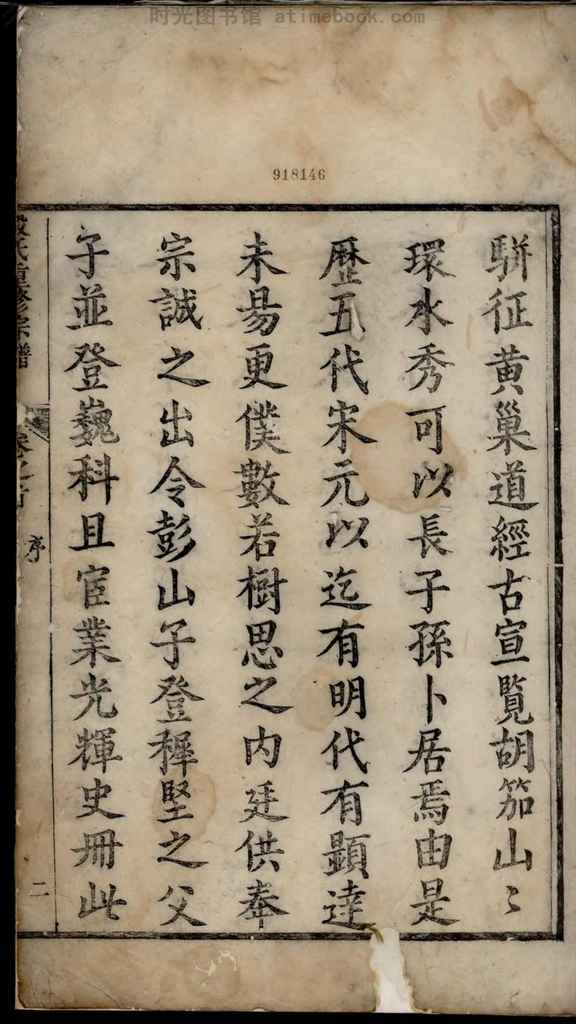 时光图书馆 atimebook.com
918146
駢征黄巢道經古宣覽胡笳山〻
環水秀可以長子孫卜居焉由是
歷五代宋元以迄有明代有顯達
未易更僕數若樹思之内廷供奉
宗誠之出令彭山子登穉堅之父
子並登巍科且宦業光輝史冊此
氏重修宗譜
序
二